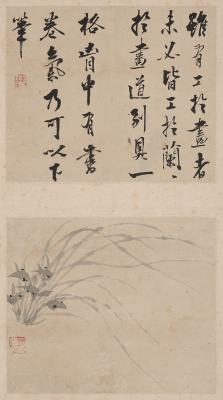 雖有工於畫者
未必皆工於蘭蘭
於畫道別具一
格胷中有書
卷氣乃可以下
筆